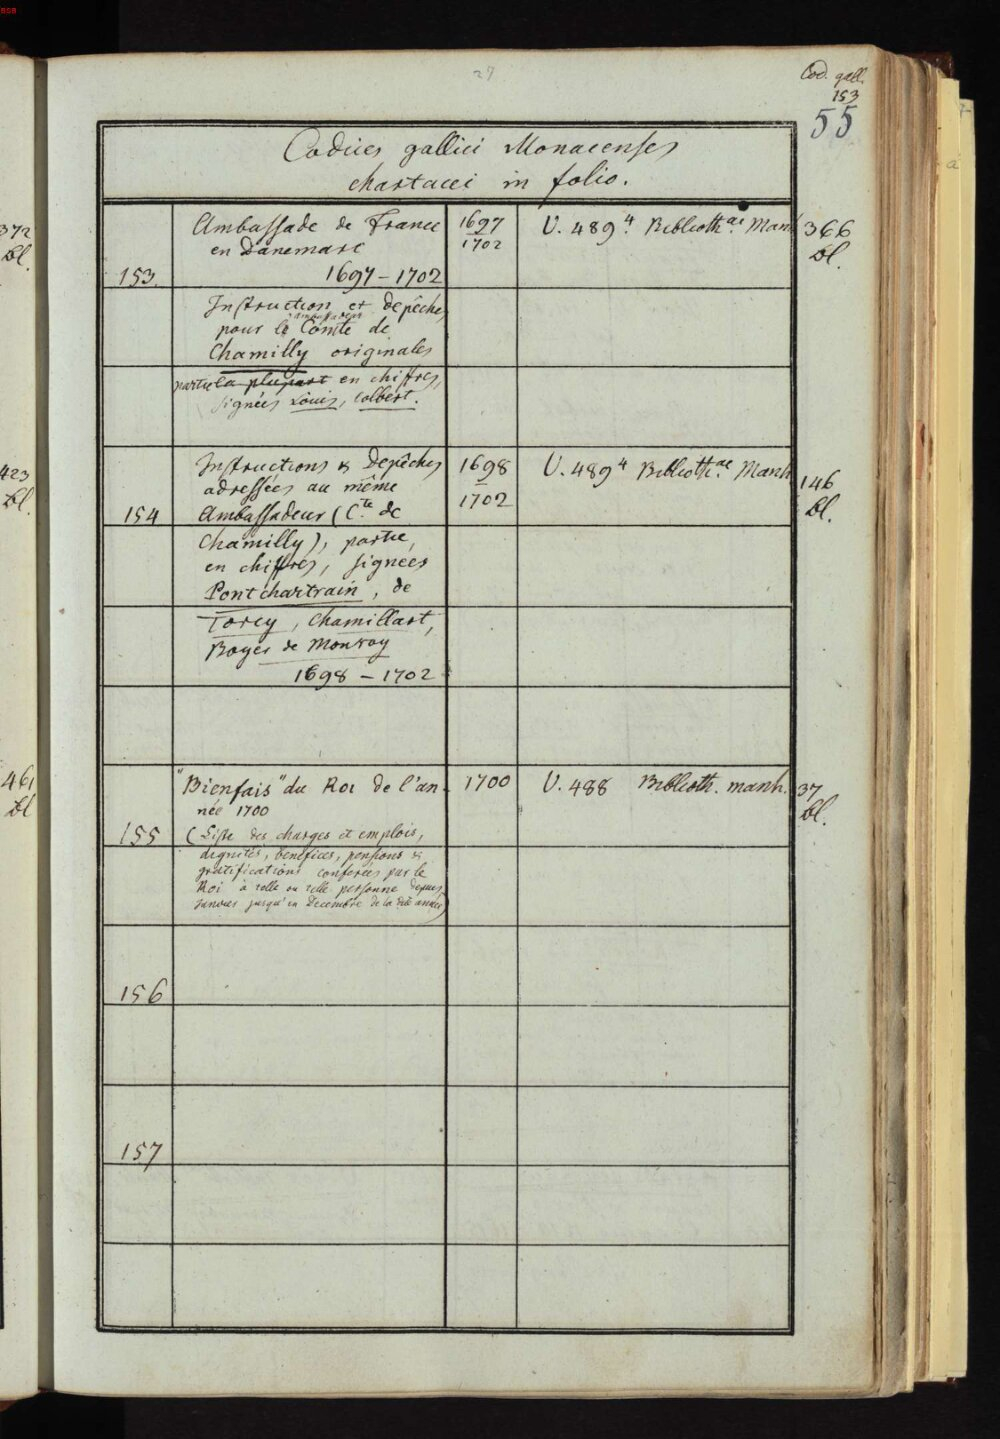 BSB
27
Cod. gall.
153
55
Codices gallici Monacenses
chartacei in folio.
372
Bl.
153.
Ambassade de France
en Danemarc
1697-1702
1697
1702
U. 489.4 Biblioth.ae Manh
366
Bl.
Instruction et depêches
pour le Comte de
ambassadeur
Chamilly originales
partie la plupart en chiffres,
signées Louis, Colbert.
423
Bl.
154
Instructions & depêches
adressées au même
Ambassadeur (C.te de
Chamilly), partie
en chiffres, signées
Pontchartrain, de
Torcy, Chamillart,
Royer de Monroy
1698-1702
1698
1702
U. 489 4 Biblioth.ae Manh
146
Bl.
461
Bl
155
"Bienfais" du Roi de l'an-
née 1700
(Liste des charges et emplois,
dignités, bénéfices, pensions &
gratifications conferées par le
Roi à telle ou telle personne depuis
Janvier jusqu'en Decembre de la dite année)
1700
U. 488 Biblioth. manh.
37
Bl.
156
157